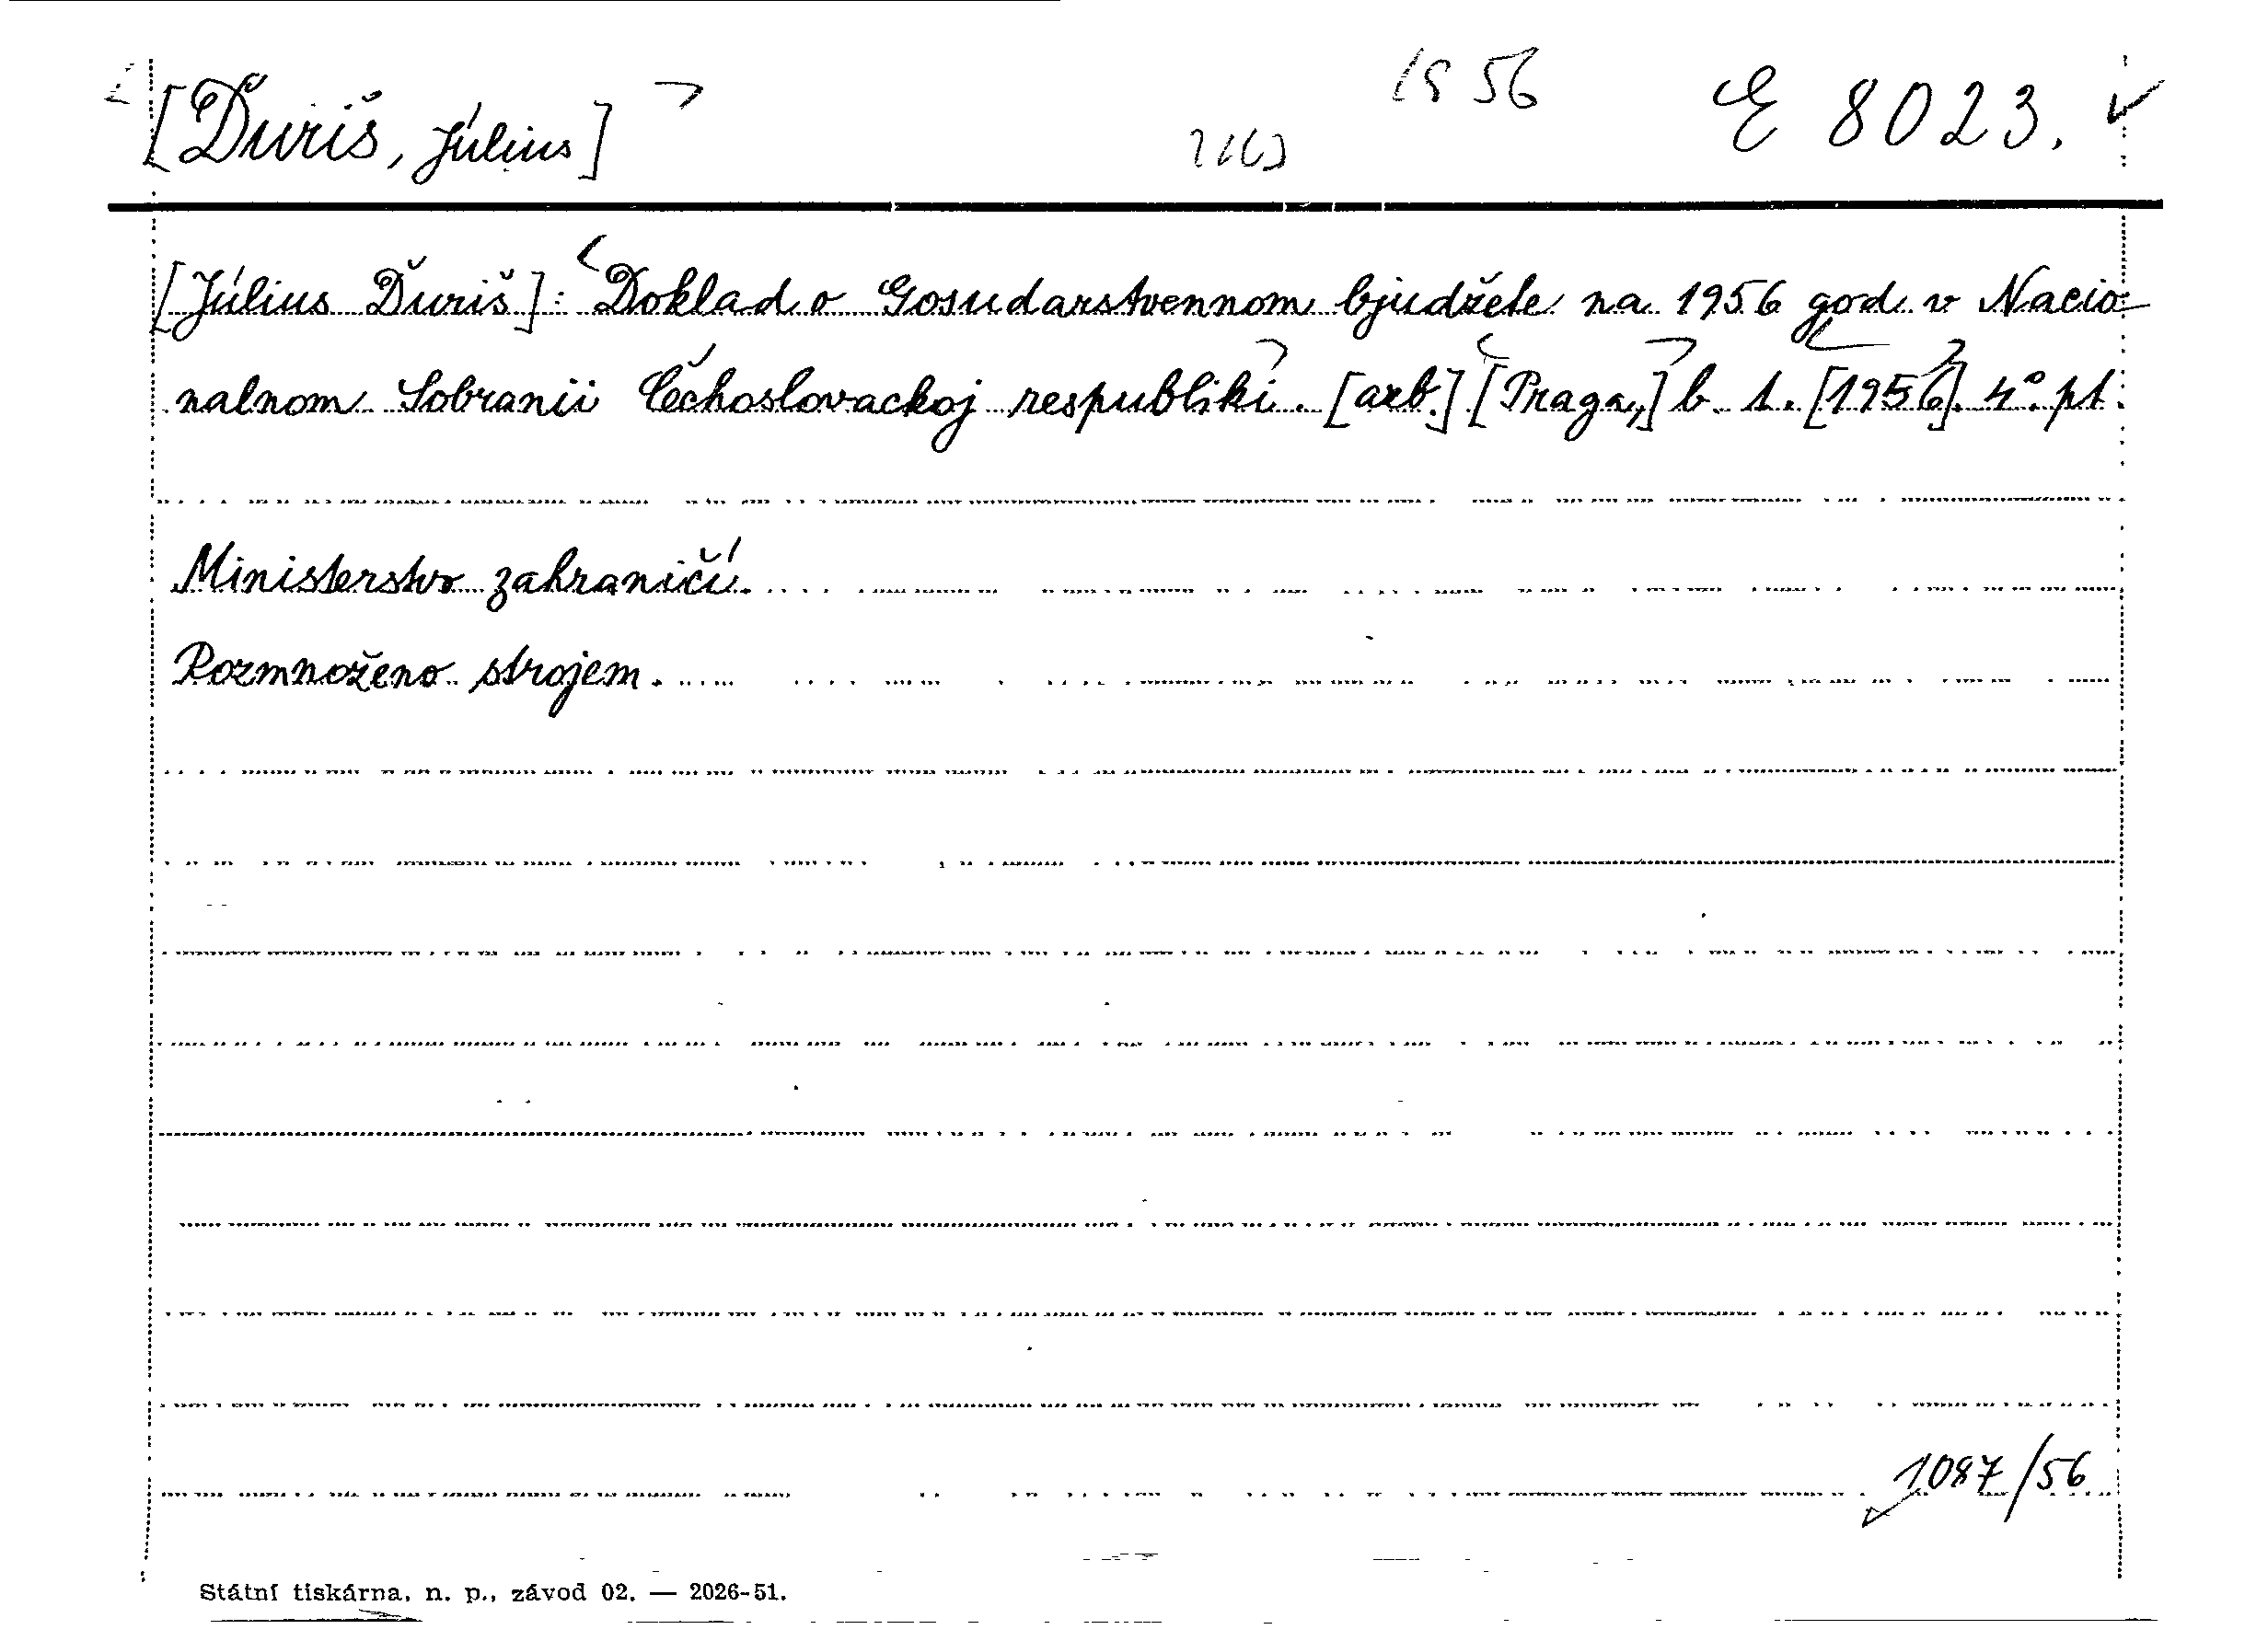 [Ďuriš, Július] 1956 E 8023.
[Július Ďuriš]: Doklad o Gosudarstvennom bjudžete na 1956 god v Nacio-
nalnom Sobranii Čechoslovackoj respubliki. [azb.] [Praga,] b. t. [1956]. 4°. pt.
Ministerstvo zahraničí.
Rozmnoženo strojem.
1087/56
Státní tiskárna, n. p., závod 02. — 2026-51.